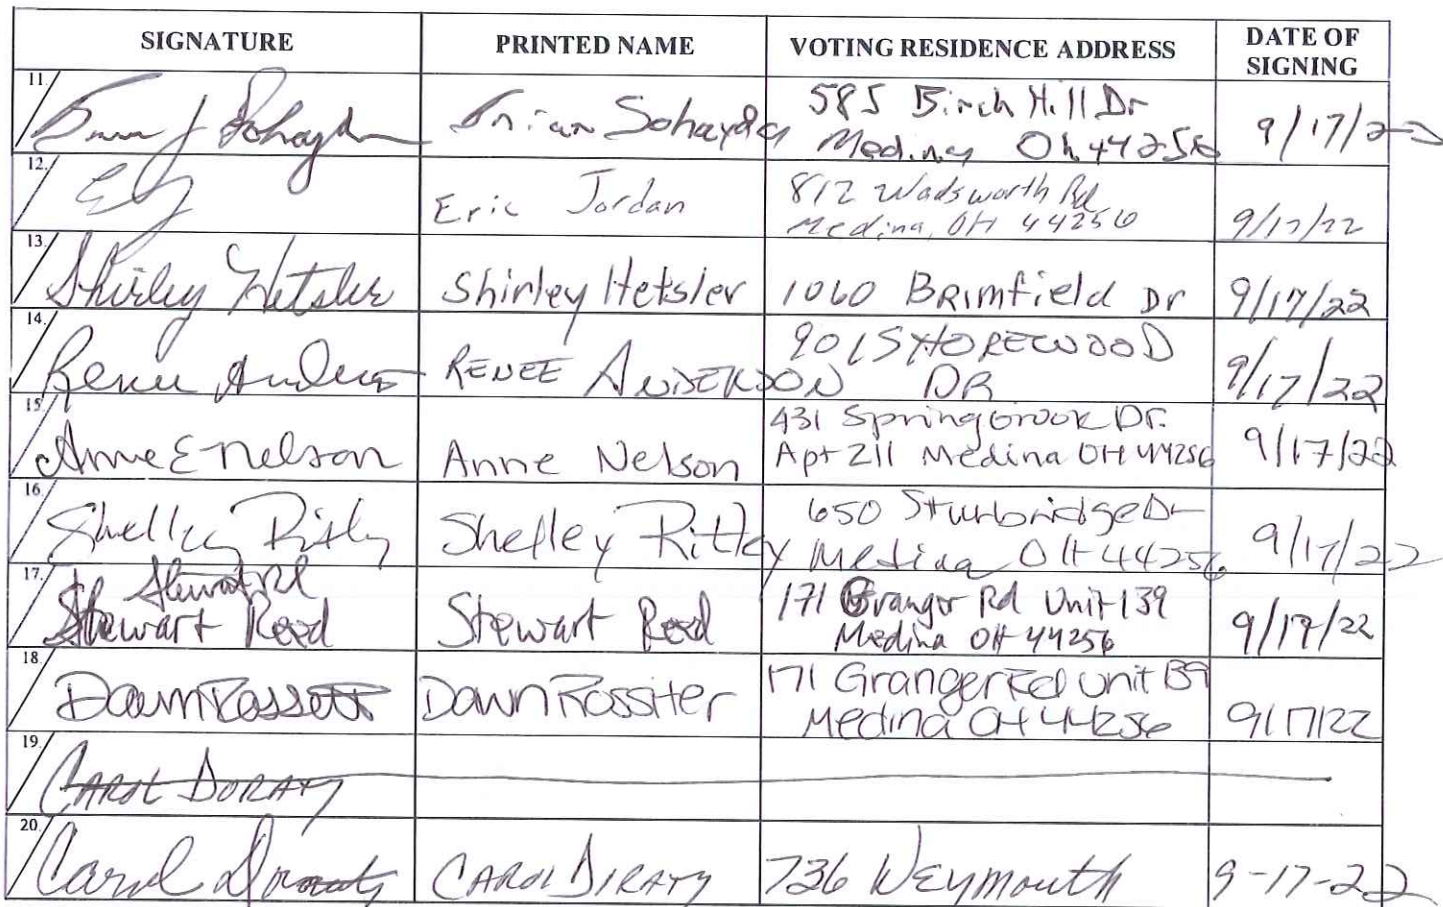 SIGNATURE PRINTED NAME VOTING RESIDENCE ADDRESS DATE OF SIGNING
11. Brian Sohayda 585 Birch Hill Dr
Medina Oh 44256 9/17/22
12. Eric Jordan 812 Wadsworth Rd
Medina, OH 44256 9/17/22
13. Shirley Hetsler Shirley Hetsler 1060 Brimfield Dr 9/17/22
14. Renee RENEE ANDERSON 901 SHOREWOOD
DR 9/17/22
15. Anne E Nelson Anne Nelson 431 Springbrook Dr.
Apt 211 Medina OH 44256 9/17/22
16. Shelley Ritley Shelley Ritley 650 Sturbridge Dr
Medina OH 44256 9/17/22
17. Stewart Reed Stewart Reed 171 Granger Rd Unit 139
Medina OH 44256 9/17/22
18. Dawn Dawn Rossiter 171 Granger Rd Unit 139
Medina OH 44256 9/17/22
19. CAROL DORATY
20. Carol Doraty CAROL DORATY 736 Weymouth 9-17-22